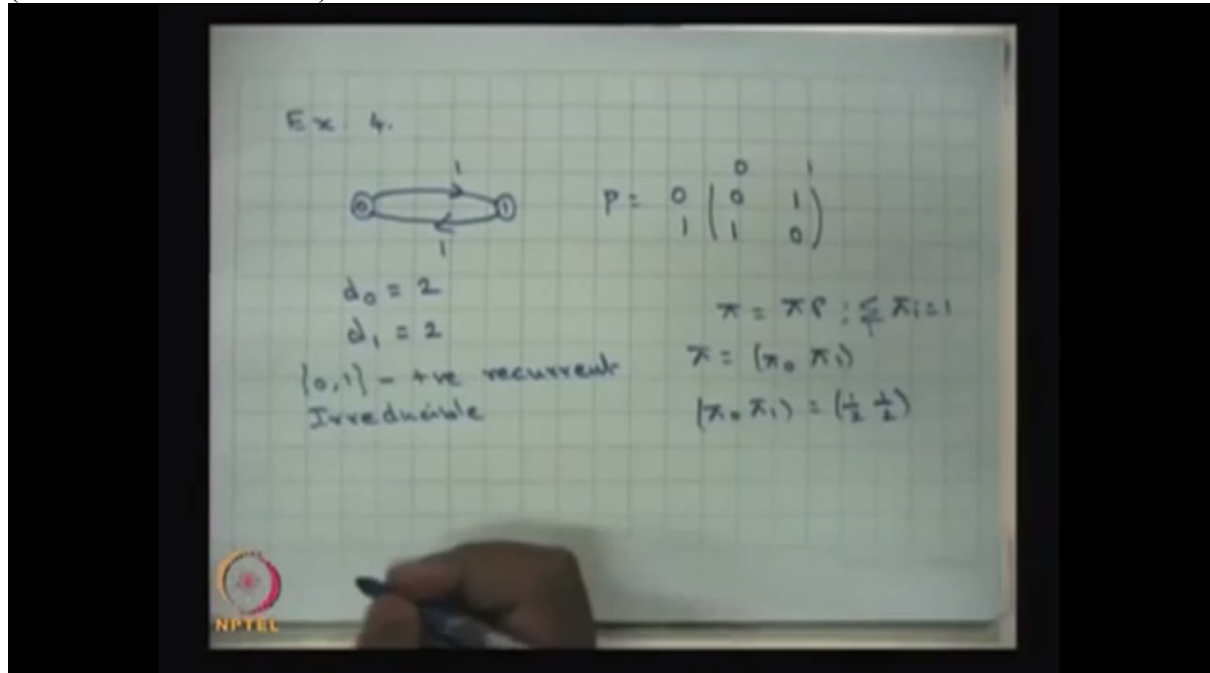 Ex. 4.
1
0 1
1
P = 0 ( 0 1 )
1 ( 1 0 )
0 1
d₀ = 2
d₁ = 2
{0,1} - +ve recurrent
Irreducible
π = πP ; Σ πi = 1
i
π = (π₀ π₁)
(π₀ π₁) = (½ ½)
NPTEL